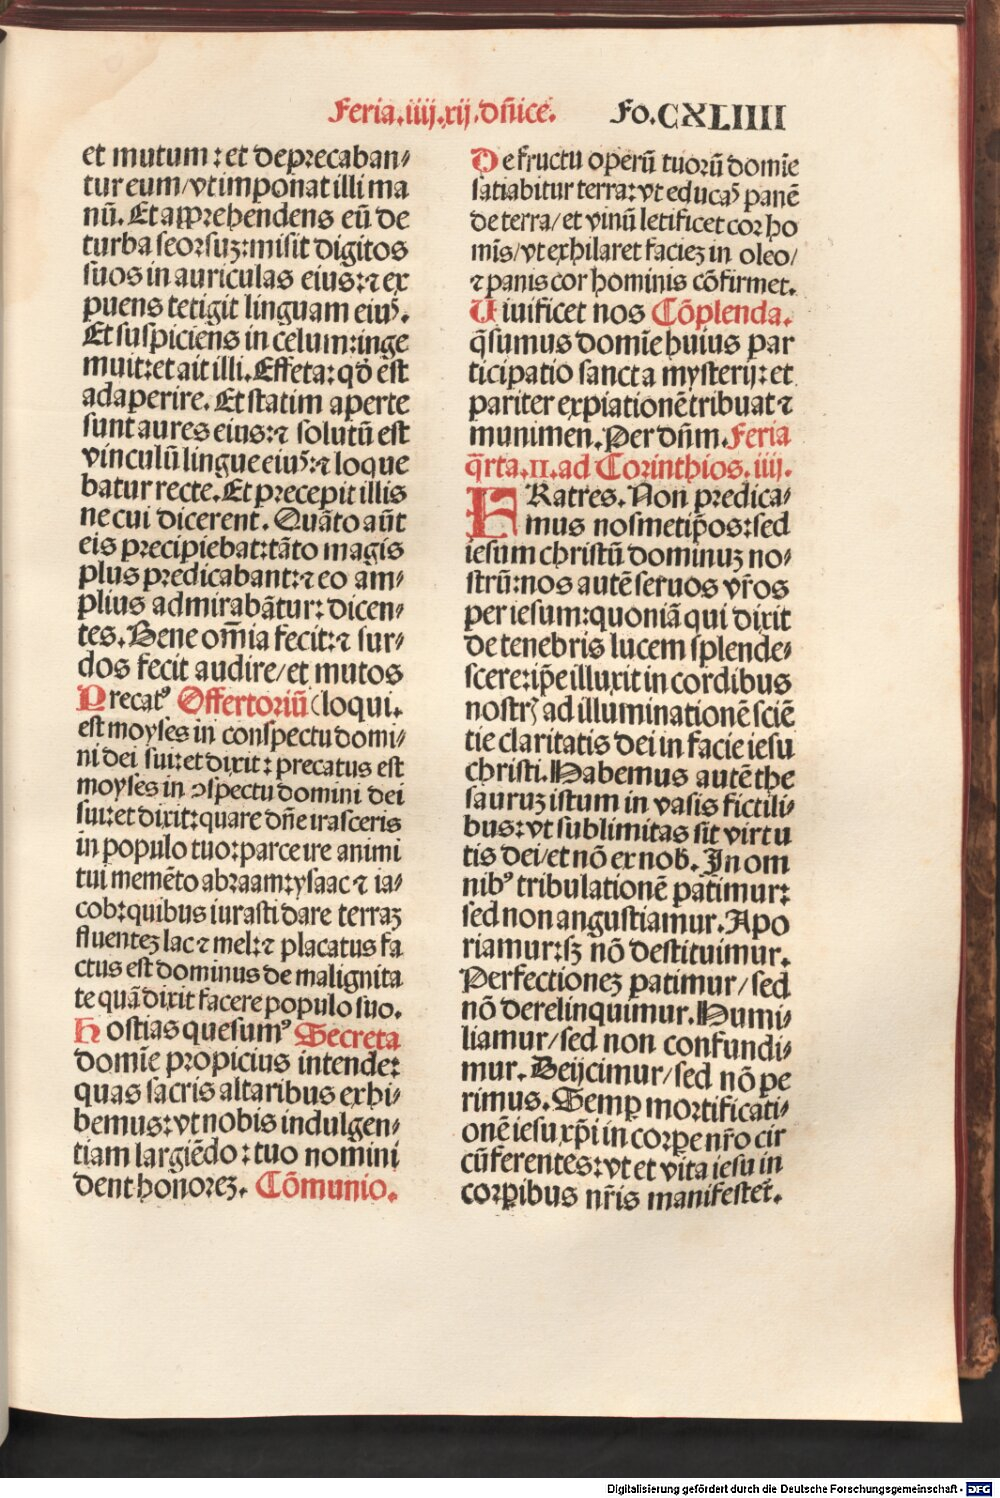 Feria.iiij.xij.dñice. Fo.CXLIIII
et mutum: et deprecaban⸗
tur eum/vt imponat illi ma
nū. Et apprehendens eū de
turba seorsuꝫ: misit digitos
suos in auriculas eius: ⁊ ex
puens tetigit linguam eiuꝰ.
Et suspiciens in celum: inge
muit: et ait illi. Effeta: qđ est
adaperire. Et statim aperte
sunt aures eius: ⁊ solutū est
vinculū lingue eiuꝰ: ⁊ loque
batur recte. Et precepit illis
ne cui dicerent. Quāto aūt
eis precipiebat: tāto magis
plus predicabant: ⁊ eo am⸗
plius admirabātur: dicen⸗
tes. Bene om̄ia fecit: ⁊ sur⸗
dos fecit audire/et mutos
Precatꝰ Offertoriū (loqui.
est moyses in conspectu domi⸗
ni dei sui: et dixit: precatus est
moyses in ↄspectu domini dei
sui: et dixit: quare dñe irasceris
in populo tuo: parce ire animi
tui memēto abraam: ysaac ⁊ ia⸗
cob: quibus iurasti dare terraꝫ
fluenteꝫ lac ⁊ mel: ⁊ placatus fa
ctus est dominus de malignita
te quā dixit facere populo suo.
Hostias quesumꝰ Secreta
domīe propicius intende:
quas sacris altaribus exhi⸗
bemus: vt nobis indulgen⸗
tiam largiēdo: tuo nomini
dent honoreꝫ. Cōmunio.
De fructu operū tuorū domīe
satiabitur terra: vt educaꝰ panē
de terra/et vinū letificet cor ho
mīs/vt exhilaret facieꝫ in oleo/
⁊ panis cor hominis cōfirmet.
Uiuificet nos Cōplenda.
q̄sumus domīe huius par
ticipatio sancta mysterij: et
pariter expiationē tribuat ⁊
munimen. Per dñm. Feria
q̄rta. II. ad Corinthios. iiij.
FRatres. Non predica⸗
mus nosmetip̄os: sed
iesum christū dominuꝫ no⸗
strū: nos autē seruos vr̄os
per iesum: quoniā qui dixit
de tenebris lucem splende⸗
scere: ip̄e illuxit in cordibus
nostrꝭ ad illuminationē sciē
tie claritatis dei in facie iesu
christi. Habemus autē the
sauruꝫ istum in vasis fictili⸗
bus: vt sublimitas sit virtu
tis dei/et nō ex nob̄. In om
nibꝰ tribulationē patimur:
sed non angustiamur. Apo
riamur: sꝫ nō destituimur.
Perfectioneꝫ patimur/sed
nō derelinquimur. Humi⸗
liamur/sed non confundi⸗
mur. Beijcimur/sed nō pe
rimus. Semꝑ mortificati⸗
onē iesu xp̄i in corpe nr̄o cir
cūferentes: vt et vita iesu in
corꝑibus nr̄is manifestet̄.
Digitalisierung gefördert durch die Deutsche Forschungsgemeinschaft - DFG